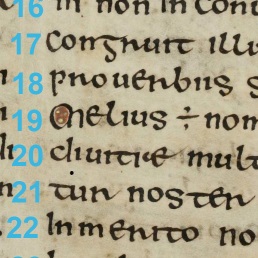 16 in non in cont
17 congruit illi
18 prouerbiis s
19 Melius ÷ nom
20 diuitie mult
21 tur noster
22 Inmerito no